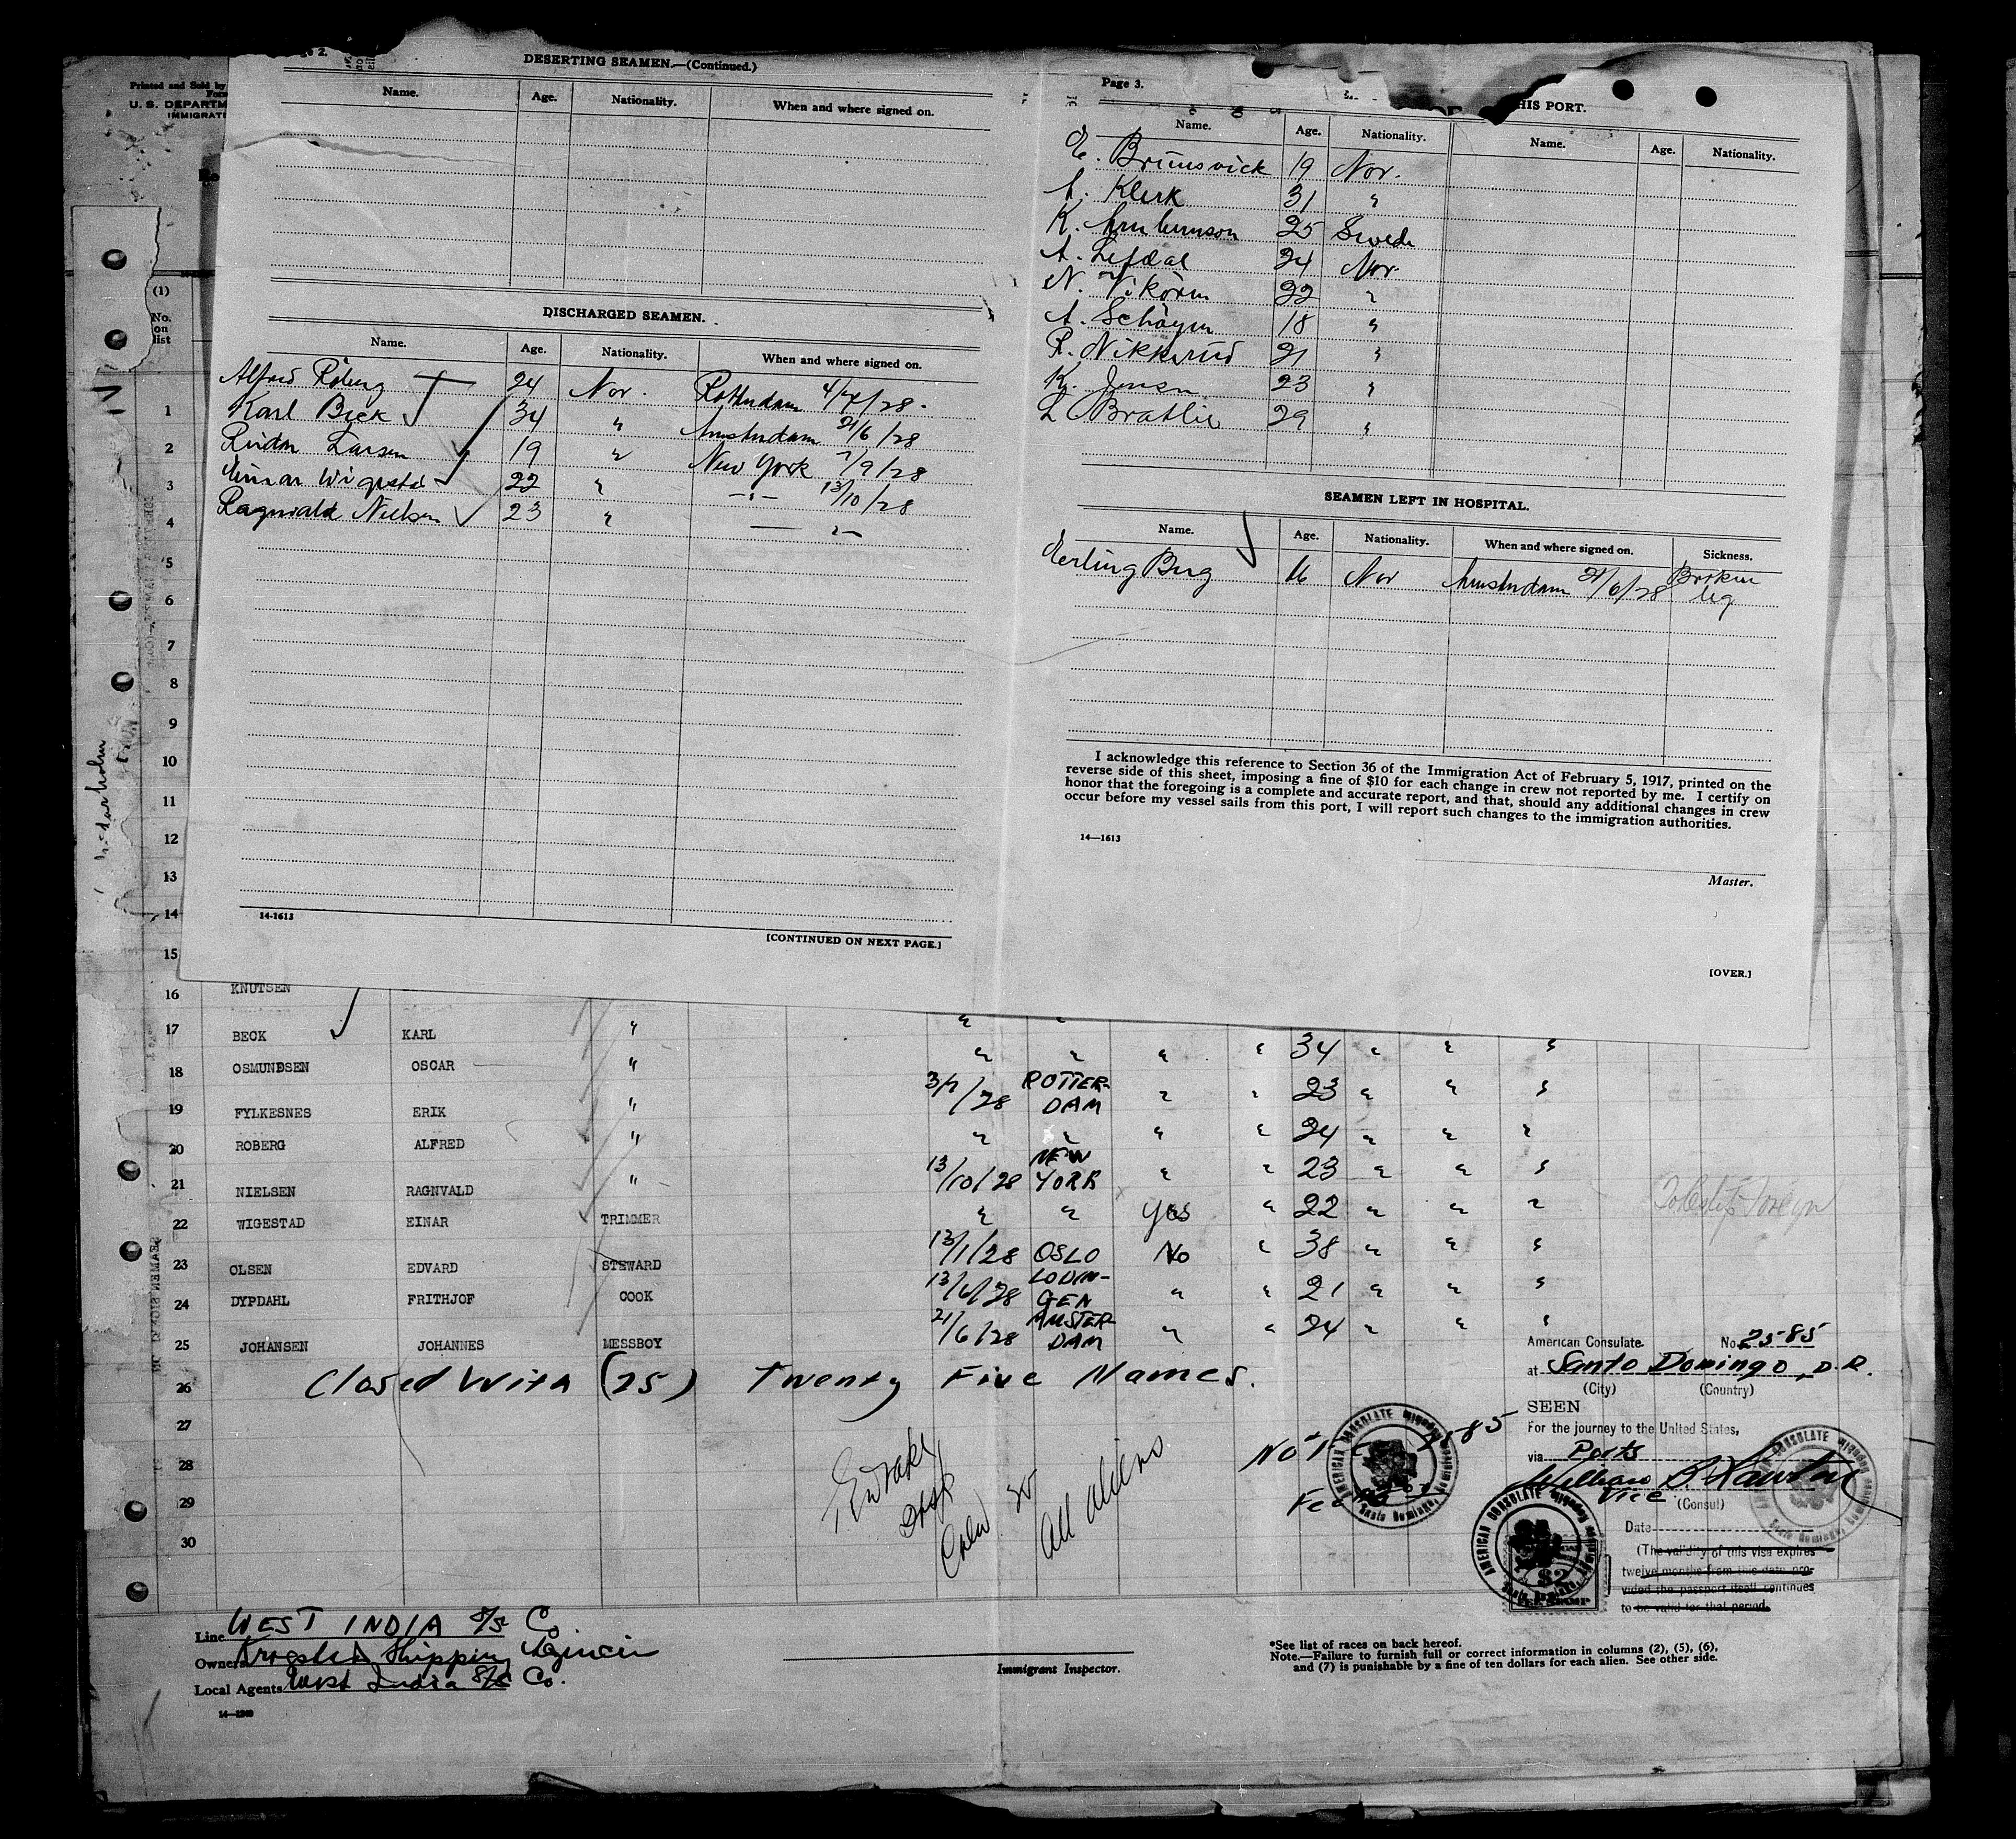 Printed and Sold by
Form
U. S. DEPARTM
IMMIGRATI
DESERTING SEAMEN.—(Continued.)
Name. Age. Nationality. When and where signed on.
DISCHARGED SEAMEN.
Name. Age. Nationality. When and where signed on.
Alfred Röberg 24 Nor. Rotterdam 4/7/28.
Karl Beck 34 " Amsterdam 21/6/28
Reidar Larsen 19 " New York 7/9/28
Einar Wigestad 22 " —"— 13/10/28
Ragnvald Nielsen 23 " —"—
14-1613
[CONTINUED ON NEXT PAGE.]
Page 3.
THIS PORT.
Name. Age. Nationality. Name. Age. Nationality.
E. Brunsvick 19 Nor.
A. Klerk 31 "
K. 25 Swede
A. Lefdal 24 Nor.
N. Vikören 22 "
A. Schöyen 18 "
R. Nikkerud 21 "
K. Jensen 23 "
L. Bratlie 29 "
SEAMEN LEFT IN HOSPITAL.
Name. Age. Nationality. When and where signed on. Sickness.
Erling Berg 16 Nor Amsterdam 21/6/28 Broken
leg
I acknowledge this reference to Section 36 of the Immigration Act of February 5, 1917, printed on the
reverse side of this sheet, imposing a fine of $10 for each change in crew not reported by me. I certify on
honor that the foregoing is a complete and accurate report, and that, should any additional changes in crew
occur before my vessel sails from this port, I will report such changes to the immigration authorities.
14—1613
Master.
[OVER.]
(1)
No.
on
list
1
2
3
4
5
6
7
8
9
10
11
12
13
14
15
16 KNUTSEN
17 BECK KARL " " " " " 34 " " "
18 OSMUNDSEN OSCAR " 3/7/28 ROTTER-DAM " " 23 " " "
19 FYLKESNES ERIK " " " " " 24 " " "
20 ROBERG ALFRED " 13/10/28 NEW YORK " " 23 " " "
21 NIELSEN RAGNVALD " " " Yes " 22 " " "
22 WIGESTAD EINAR TRIMMER 13/1/28 OSLO No " 38 " " "
23 OLSEN EDVARD STEWARD 13/6/28 LODIN-GEN " " 21 " " "
24 DYPDAHL FRITHJOF COOK 21/6/28 AMSTER-DAM " " 24 " " "
25 JOHANSEN JOHANNES MESSBOY
26 Closed With (25) Twenty Five Names.
27
28
29
30
Crew
All aliens
No 2585
American Consulate. No. 2585
at Santo Domingo, D.R.
(City) (Country)
SEEN
For the journey to the United States,
via Ports
William
Vice (Consul)
Date
(The validity of this visa expires
twelve months from this date pro-
vided the passport itself continues
to be valid for that period.
AMERICAN CONSULATE
Santo Domingo
$2
Line WEST INDIA S/S Co
Owners Shipping Agencies
Local Agents West India S/S Co.
Immigrant Inspector.
*See list of races on back hereof.
Note.—Failure to furnish full or correct information in columns (2), (5), (6),
and (7) is punishable by a fine of ten dollars for each alien. See other side.